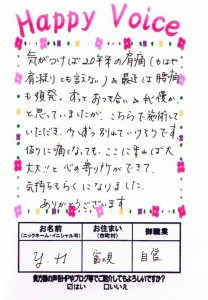 Happy Voice
気がつけば20年来の肩痛（もはや
肩凝りとも言えない）& 最近は腰痛
も頻発。ずっとお付き合い&我慢か、
と思っていましたが、こちらで施術して
いただき、少しずつ和らいでいきそうです。
仮りに痛くなっても、ここに来れば大
丈夫！！と心の寄り所ができて、
気持ちもらくになりました。
ありがとうございます
お名前
(ニックネーム・イニシャル可)
お住まい
(市町村)
御職業
Y.H
自営
貴方様の声をHPやブログ等でご紹介してもよろしいですか？
☑はい □いいえ